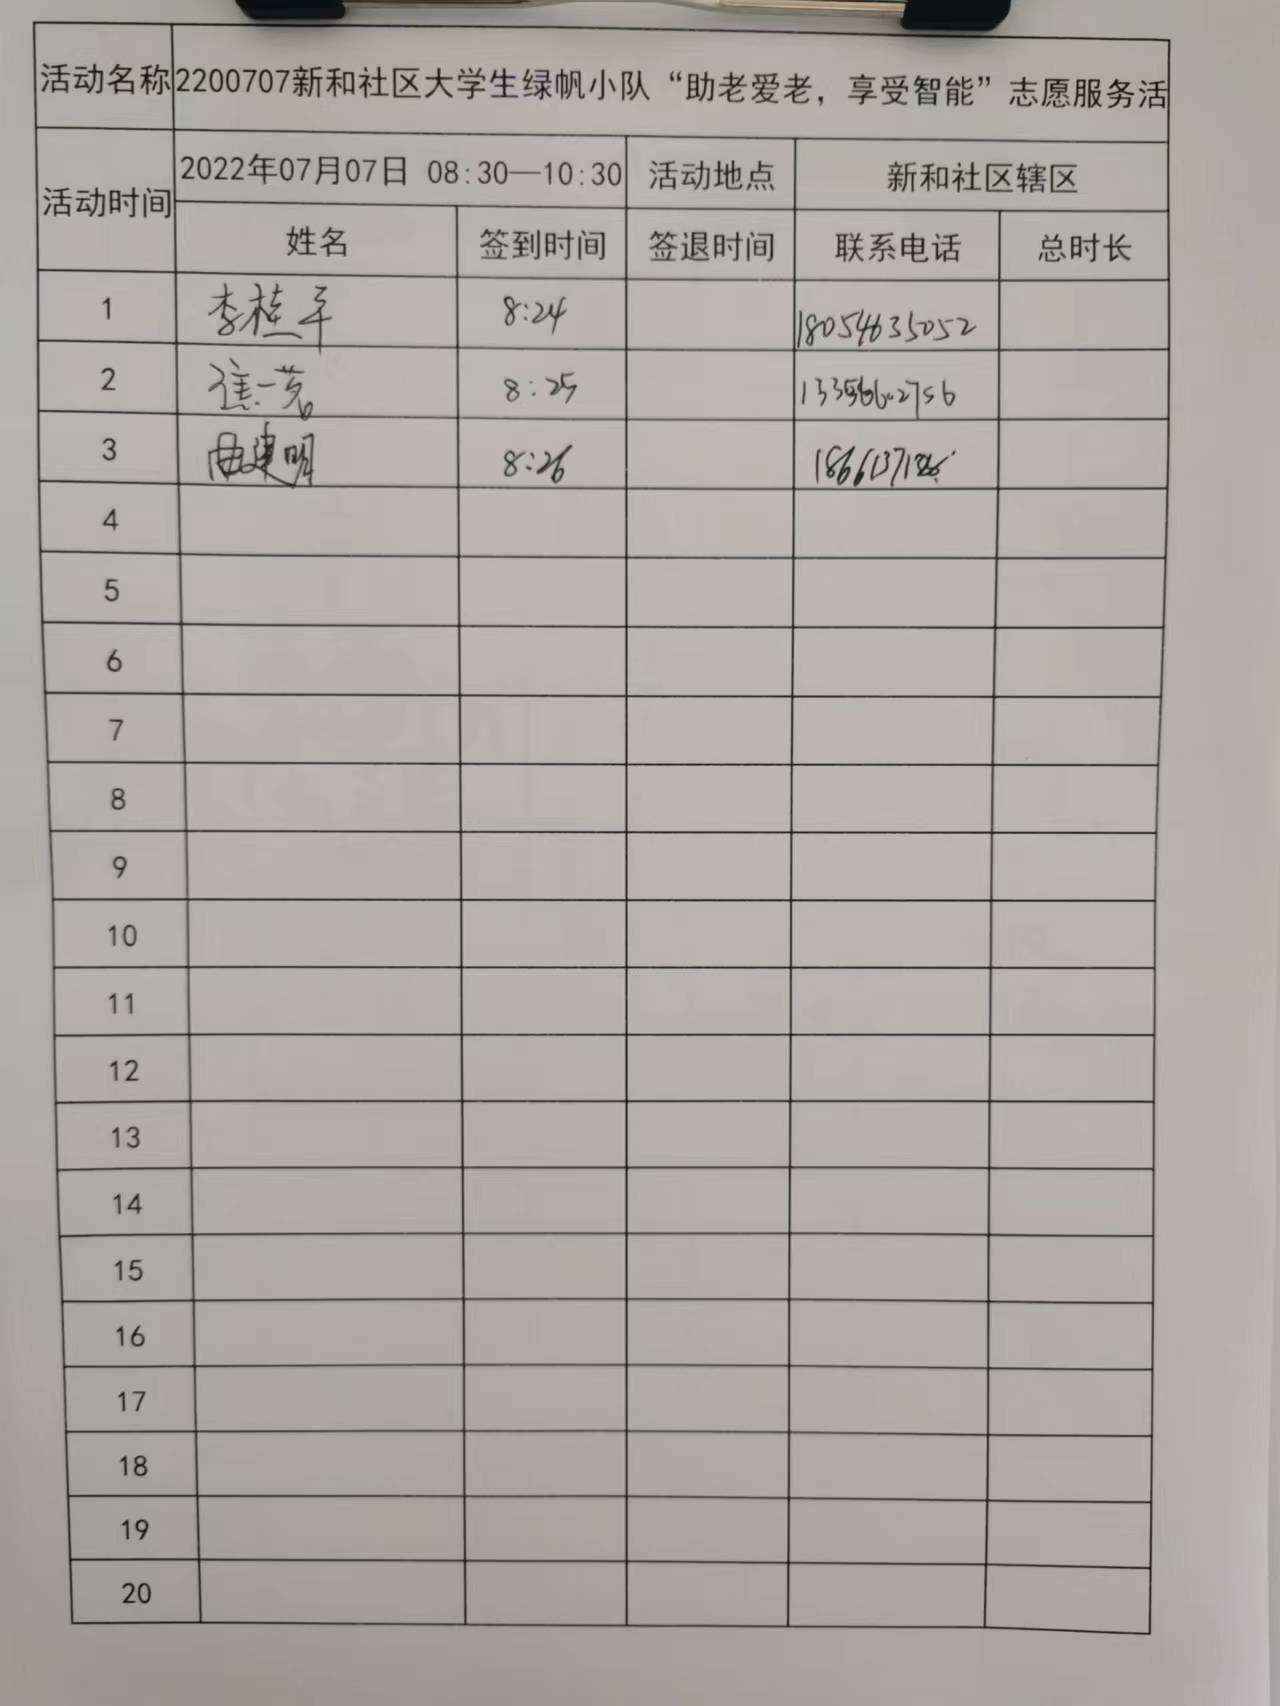 活动名称 2200707新和社区大学生绿帆小队“助老爱老，享受智能”志愿服务活
活动时间 2022年07月07日 08:30—10:30 活动地点 新和社区辖区
姓名 签到时间 签退时间 联系电话 总时长
1 李桂平 8:24 18054635052
2 焦一茗 8:25
3 曲建明 8:26
4
5
6
7
8
9
10
11
12
13
14
15
16
17
18
19
20